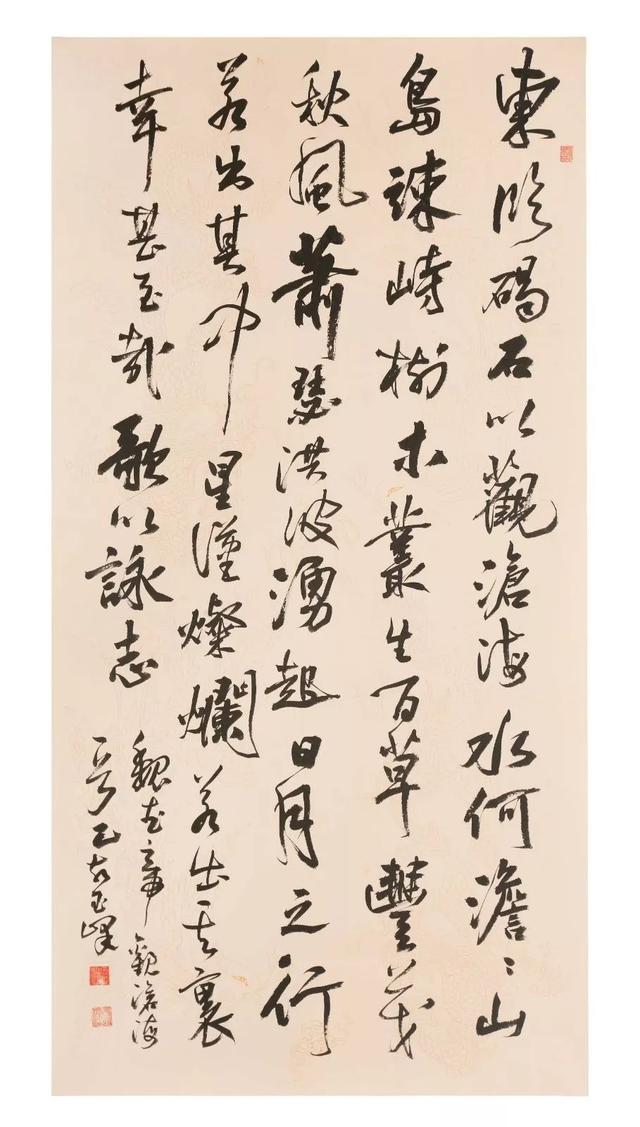 東臨碣石以觀滄海水何澹〻山
島竦峙樹木叢生百草豐茂
秋風蕭瑟洪波湧起日月之行
若出其中星漢燦爛若出其裏
幸甚至哉歌以詠志
魏武帝觀滄海